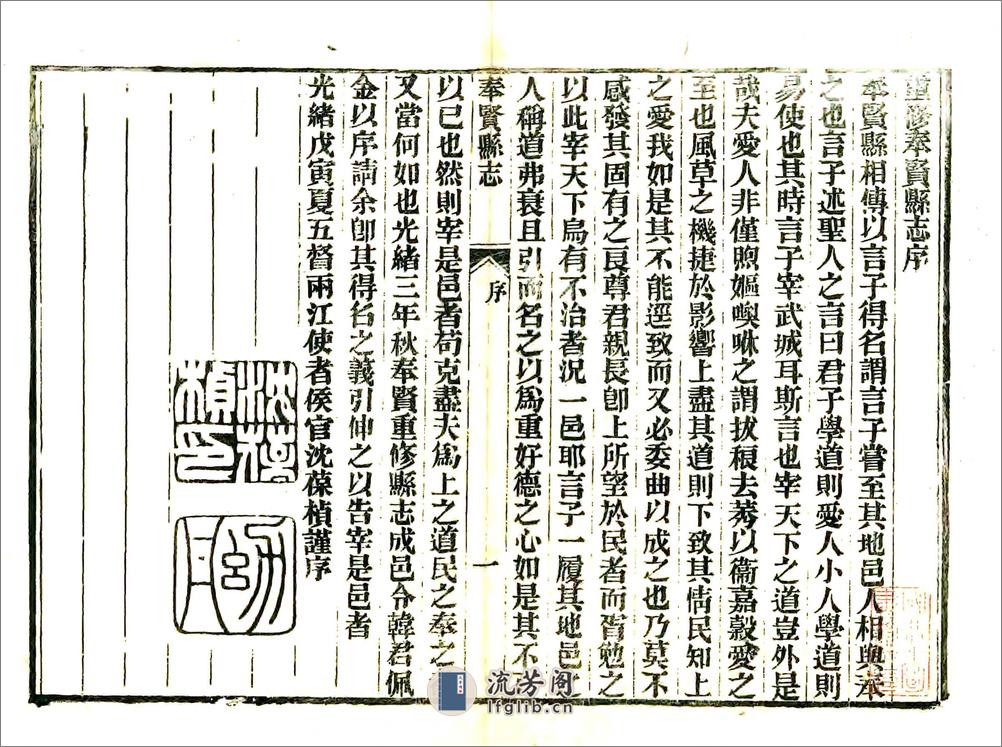 重修奉賢縣志序
奉賢縣相傳以言子得名謂言子嘗至其地邑人相與奉
之也言子述聖人之言曰君子學道則愛人小人學道則
易使也其時言子宰武城耳斯言也宰天下之道豈外是
哉夫愛人非僅煦嫗噢咻之謂拔稂去莠以衞嘉穀愛之
至也風草之機捷於影響上盡其道則下致其情民知上
之愛我如是其不能逕致而又必委曲以成之也乃莫不
感發其固有之良尊君親長卽上所望於民者而胥勉之
以此宰天下烏有不治者況一邑耶言子一履其地邑之
人稱道弗衰且引而名之以爲重好德之心如是其不
奉賢縣志
序
一
以已也然則宰是邑者苟克盡夫爲上之道民之奉之
又當何如也光緒三年秋奉賢重修縣志成邑令韓君佩
金以序請余卽其得名之義引伸之以告宰是邑者
光緒戊寅夏五督兩江使者侯官沈葆楨謹序
沈葆楨印
流芳阁
lfglib.cn